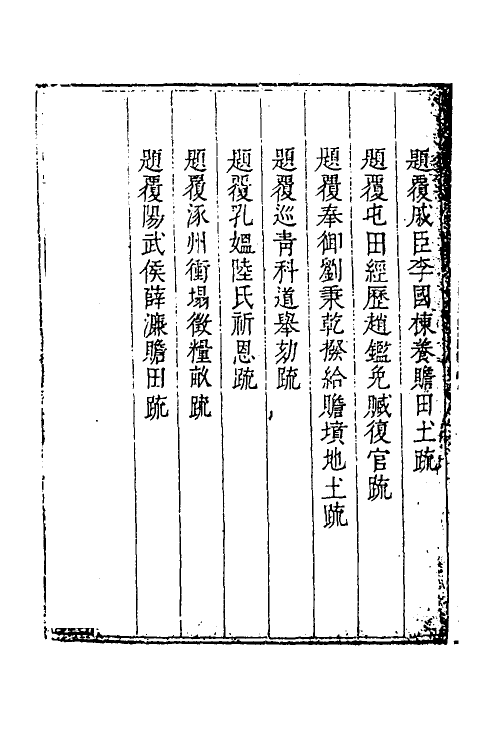 題覆戚臣李國棟養贍田土疏
題覆屯田經歷趙鑑免贓復官疏
題覆奉御劉秉乾撥給贍墳地土疏
題覆巡青科道舉劾疏
題覆孔媼陸氏祈恩疏
題覆涿州衝塌徵糧畝疏
題覆陽武侯薛濂贍田疏